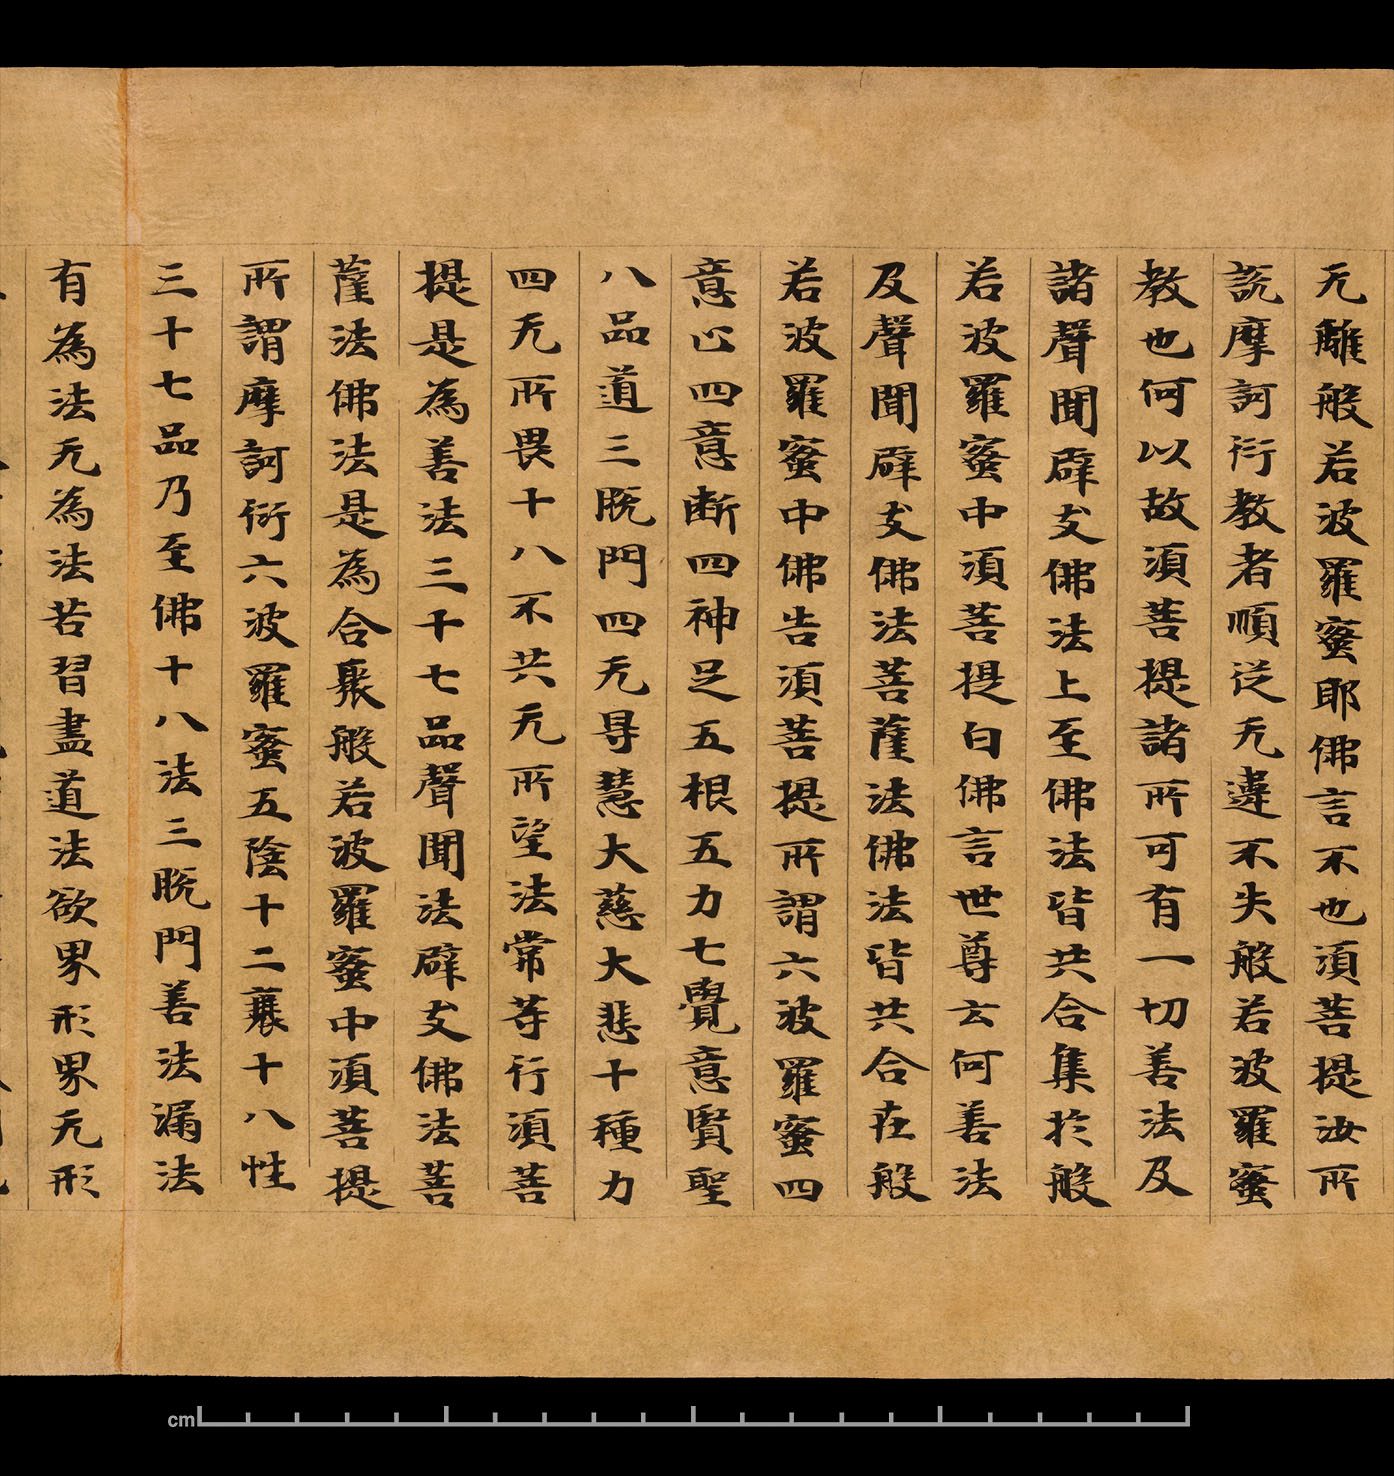 无離般若波羅蜜耶佛言不也須菩提汝所
說摩訶衍教者順從无違不失般若波羅蜜
教也何以故須菩提諸所可有一切善法及
諸聲聞辟支佛法上至佛法皆共合集於般
若波羅蜜中須菩提白佛言世尊云何善法
及聲聞辟支佛法菩薩法佛法皆共合在般
若波羅蜜中佛告須菩提所謂六波羅蜜四
意止四意断四神足五根五力七覺意賢聖
八品道三脱門四无㝵慧大慈大悲十種力
四无所畏十八不共无所望法常等行須菩
提是為善法三十七品聲聞法辟支佛法菩
薩法佛法是為合聚般若波羅蜜中須菩提
所謂摩訶衍六波羅蜜五陰十二衰十八性
三十七品乃至佛十八法三脱門善法漏法
有為法无為法苦習盡道法欲界形界无形
cm